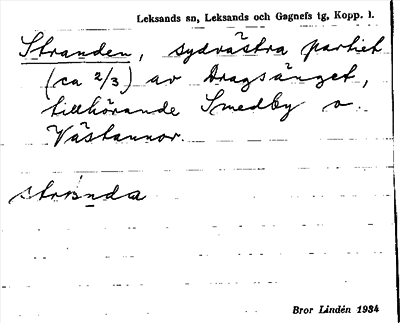 Leksands sn, Leksands och Gagnefs tg, Kopp. l.
Stranden, sydvästra partiet
(ca 2/3) av Dragsänget,
tillhörande Smedby o.
Västannor.
stranda
Bror Lindén 1934